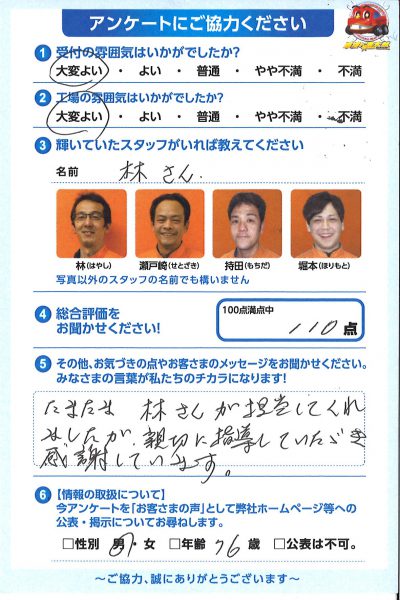 アンケートにご協力ください
1 受付の雰囲気はいかがでしたか?
大変よい ・ よい ・ 普通 ・ やや不満 ・ 不満
2 工場の雰囲気はいかがでしたか?
大変よい ・ よい ・ 普通 ・ やや不満 ・ 不満
3 輝いていたスタッフがいれば教えてください
名前 林さん.
林(はやし) 瀬戸崎(せとざき) 持田(もちだ) 堀本(ほりもと)
写真以外のスタッフの名前でも構いません
4 総合評価をお聞かせください!
100点満点中
110点
5 その他、お気づきの点やお客さまのメッセージをお聞かせください。
みなさまの言葉が私たちのチカラになります!
たまたま 林さんが担当してくれ
ましたが、親切に指導していただき
感謝しています。
6 【情報の取扱について】
今アンケートを「お客さまの声」として弊社ホームページ等への
公表・掲示についてお尋ねします。
□性別 男・女 □年齢 76歳 □公表は不可。
～ご協力、誠にありがとうございます～